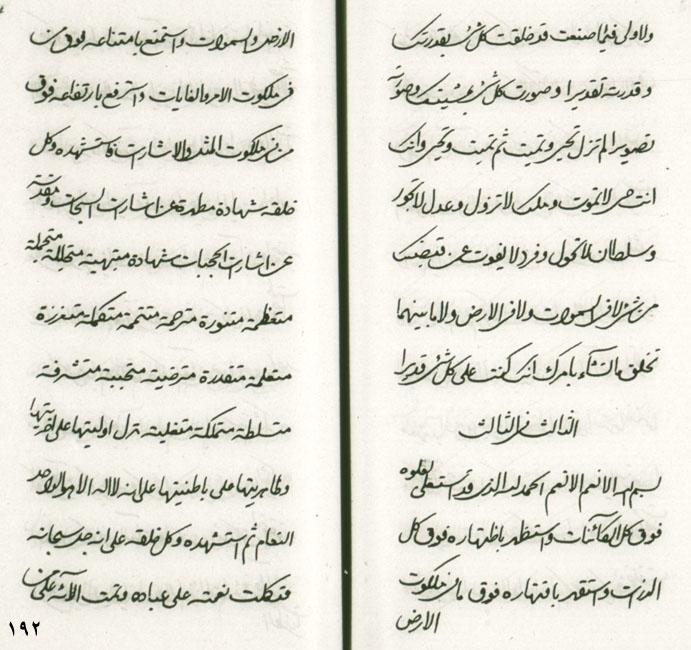 ولاولی فیما صنعت قد خلقت کل شئ بقدرتک
و قدرته تقدیرا و صورت کل شئ بمشیتک و صورته
تصویرا لم تزل تحیی و تمیت ثم تمیت و تحیی وانک
انت حی لا تموت و ملک لا تزول و عدل لا تجور
و سلطان لا تحول و فرد لا یفوت عن قبضتک
من شئ لا فی السموات ولا فی الارض ولا ما بینهما
تخلق ما تشآء بامرک انک کنت علی کل شئ قدیرا
الثالث فی الثالث
بسم الله الانعم الانعم الحمد لله الذی قد استعلی بعلوه
فوق کل الکآئنات واستظهر باظتهاره فوق کل
الذرات واستقهر باقتهاره فوق ما فی ملکوت
الارض
الارض والسموات واستمنع بامتناعه فوق من
فی ملکوت الامر والغایات واسترفع بارتفاعه فوق
من فی ملکوت المثل والاشارات فاستشهده وکل
خلقه شهادة مطهرة عن اشارات السبحات ومقدسة
عن اشارات الحجبات شهادة مبتهیة متجللة متجملة
متعظمة متنورة مترحمة متتممة متکملة متعززة
متعلمة متقدرة مترضیة متحببة متشرفة
متسلطة متملکة متعلیة تزل اولیتها علی اخریتها
وظاهریتها علی باطنیتها علی انه لا اله الا هو الواحد
النعام ثم استشهده وکل خلقه علی انه جل سبحانه
قد کملت نعمته علی عباده وتمت الآئه علی من
١٩٢